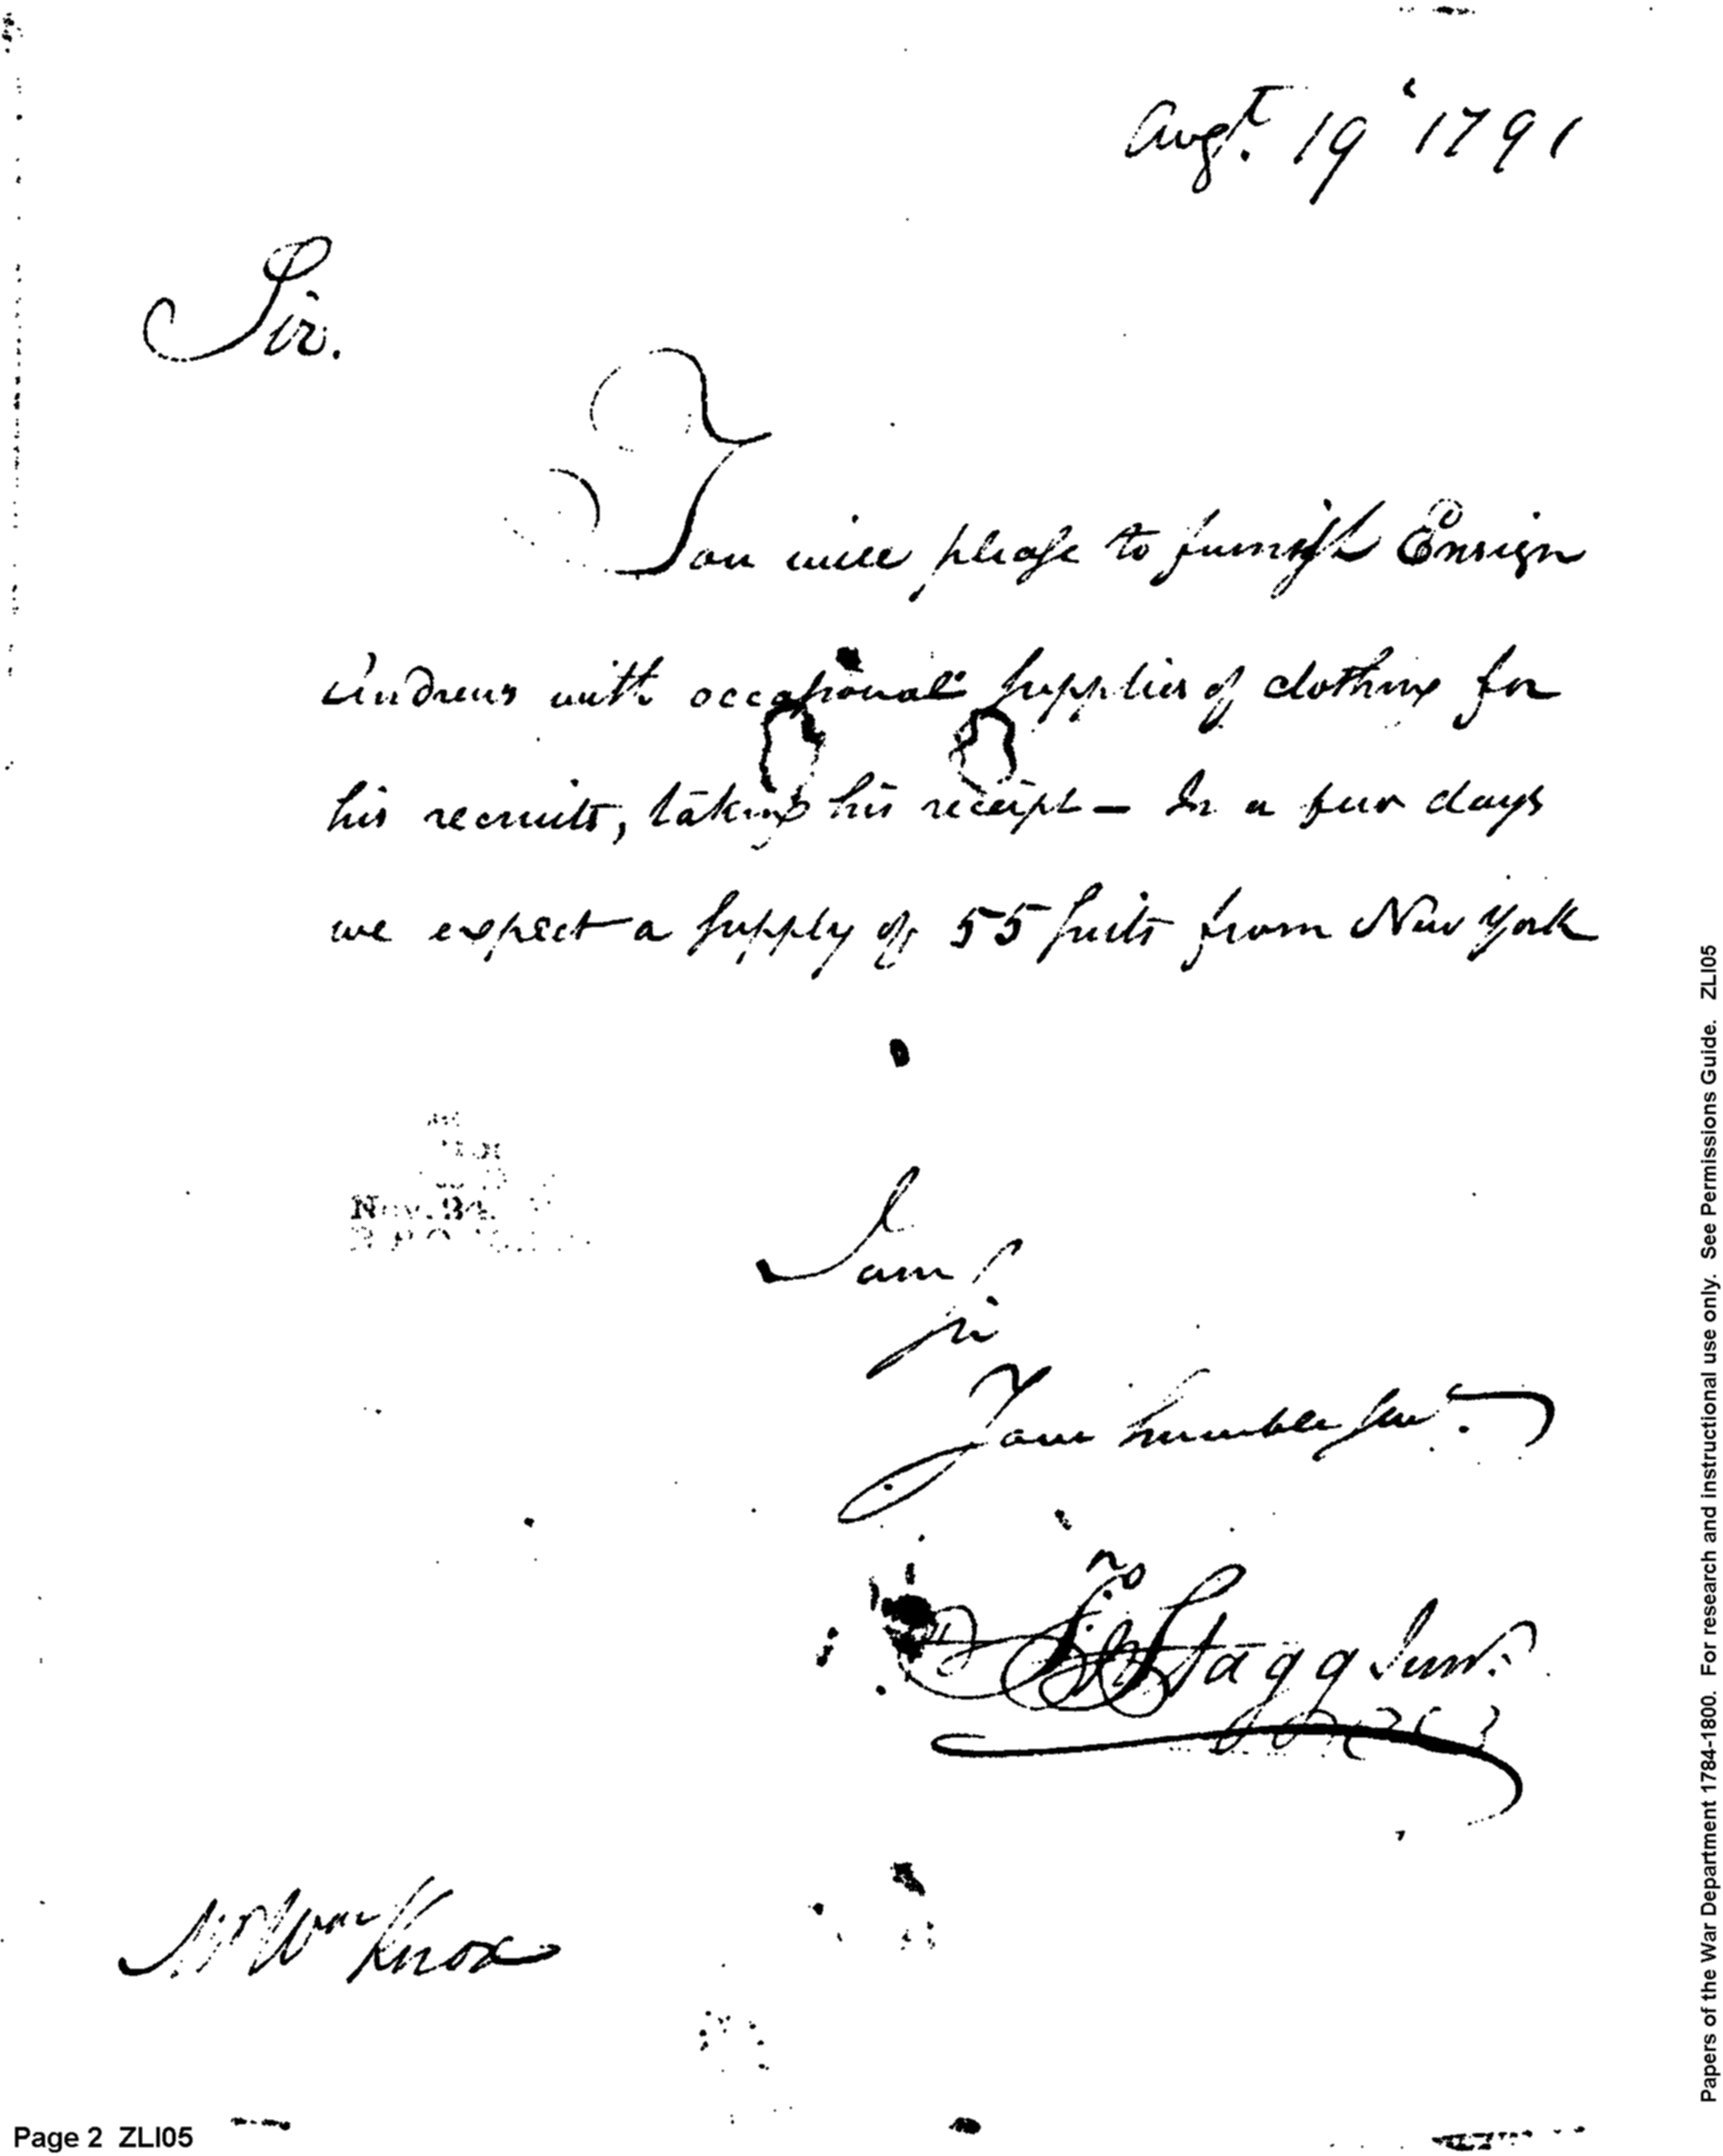 Augt. 19 1791
Sir.
You will please to furnish Ensign
Andrews with occasional supplies of clothing for
his recruits, taking his receipt – In a few days
we expect a supply of 55 suits from New York
I am
sir
Your humble servt.
Jno Stagg Junr.
Mr Wm Knox
Page 2 ZLI05
Papers of the War Department 1784-1800. For research and instructional use only. See Permissions Guide. ZLI05